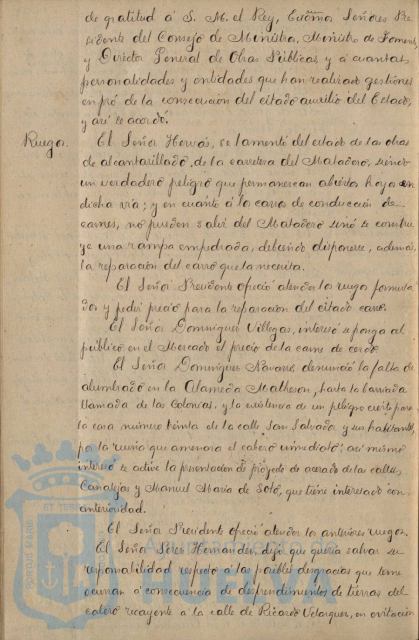 de gratitud á S. M. el Rey, Excmo Señores Pre-
sidente del Consejo de Ministros, Ministro de Fomento
y Director General de Obras Públicas y á cuantas
personalidades y entidades que han realizado gestiones
en pró de la consecucion del citado auxilio del Estado,
y así se acordó.
Ruego.
El Señor Hervás, se lamentó del estado de las obras
de alcantarillado, de la carretera del Matadero, siendo
un verdadero peligro que permanezcan abiertos hoyos en
dicha vía; y en cuanto á los carros de conducción de
carnes, no pueden salir del Matadero sinó se constru-
ye una rampa empedrada, debiendo disponerse, además,
la reparación del carro que la necesita.
El Señor Presidente ofreció atender los ruegos formula-
dos y pedir precio para la reparación del citado carro.
El Señor Dominguez Villegas, interesó se ponga al
público en el Mercado el precio de la carne de cerdo.
El Señor Dominguez Navarro denunció la falta de
alumbrado en la Alameda Matheson, hasta la barriada
llamada de las Colonias, y la existencia de un peligro cierto para
la casa número treinta de la calle San Salvador y sus habitantes,
por la ruina que amenaza el cabezo inmediato; así mismo
interesó se active la presentación de proyecto de acerado de las calles,
Canalejas y Manuel María de Soto, que tiene interesado con
anterioridad.
El Señor Presidente ofreció atender los anteriores ruegos.
El Señor Pérez Hernández, dijo que quería salvar su
responsabilidad respecto á las posibles desgracias que teme
ocurran á consecuencia de desprendimientos de tierras del
cabezo recayente á la calle de Ricardo Velazquez, en evitación